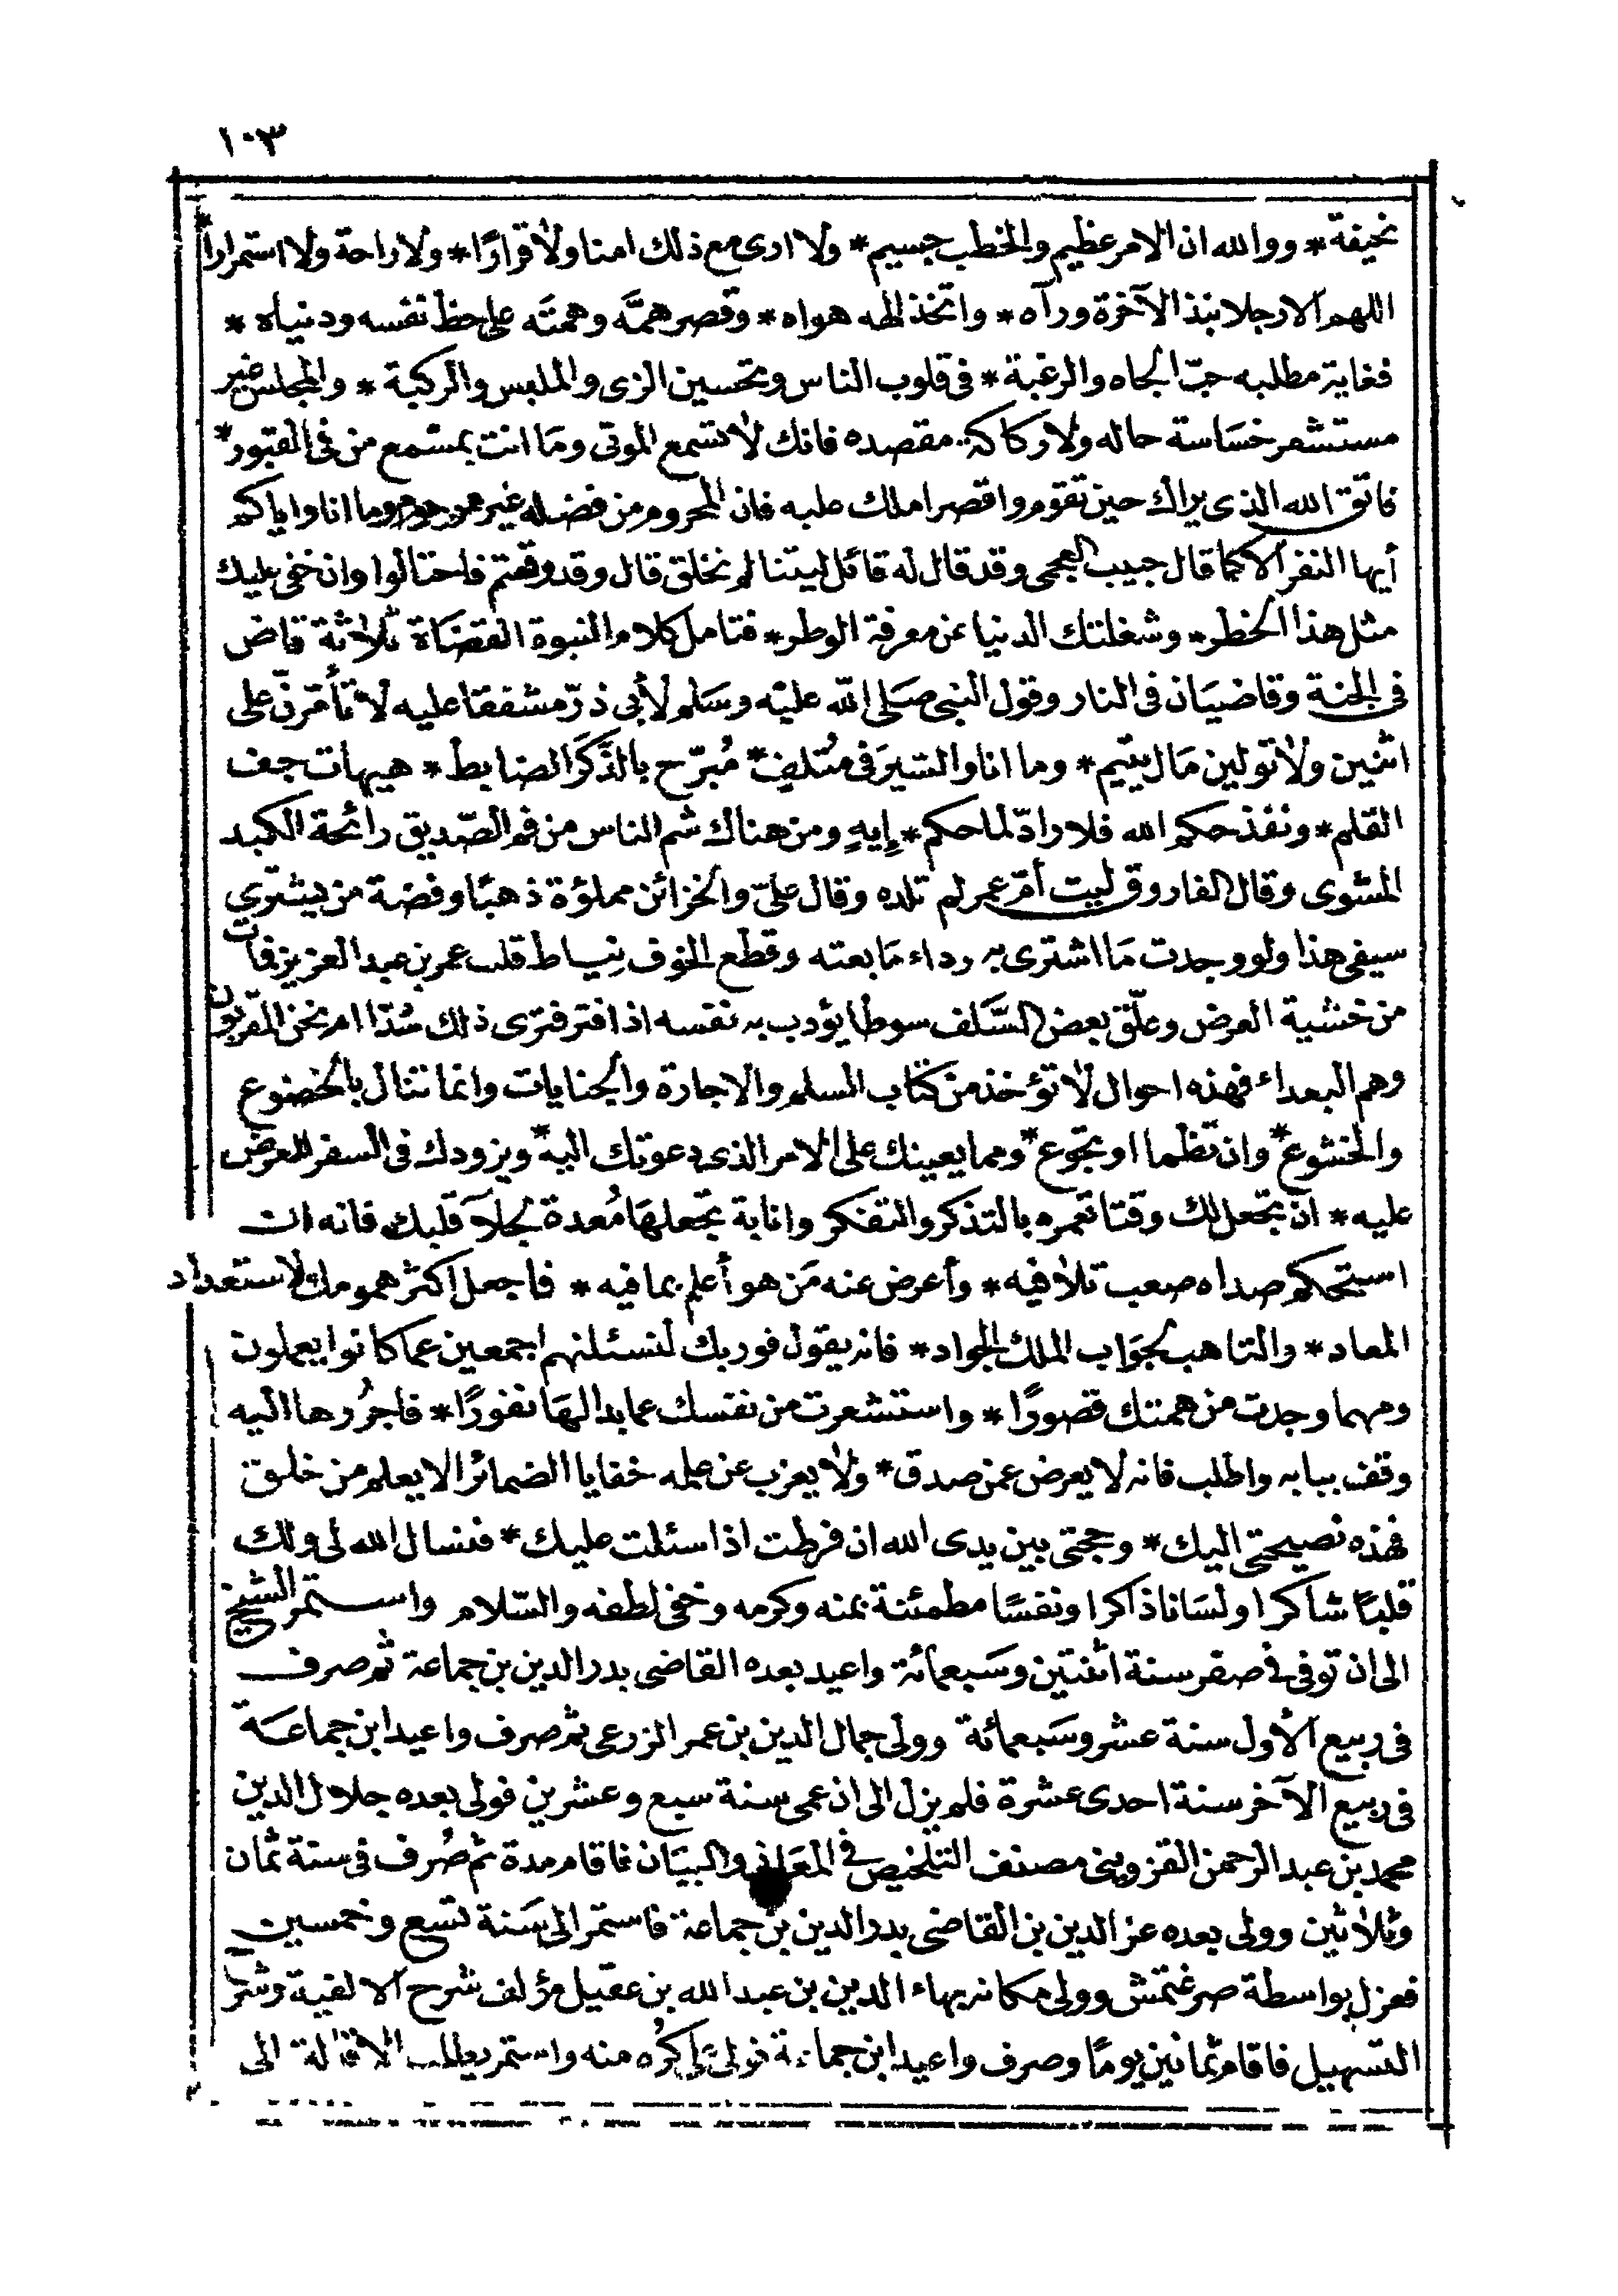 ١٠٣
نحيفة * ووالله ان الامر عظيم والخطب جسيم * ولا ارى مع ذلك امنا ولا قرارًا * ولا راحة ولا استمرارا *
اللهم الا رجلا نبذ الآخرة ورآه * واتخذ الهه هواه * وقصر همَّه وهمته على حظ نفسه ودنياه *
فغاية مطلبه حبّ الجاه والرغبة * فى قلوب الناس وتحسين الزى والملبس والركبة * والمجلس غير
مستشعر خسَاسة حاله ولا ركاكة مقصده فانك لا تسمع الموتى ومَا انت بمسمع من فى القبور *
فاتق الله الذى يراك حين تقوم واقصر املك عليه فان المحروم من فضله غير مرحوم وما انا واياكم
أيها النفر الا كما قال حبيب العجمى وقد قال له قائل ليتنا لم نخلق قال وقد وقعتم فاحتالوا وان خفى عليك
مثل هذا الخطر * وشغلتك الدنيا عن معرفة الوطر * فتامل كلام النبوة القضَاة ثلاثة قاض
فى الجنة وقاضيَان فى النار وقول النبى صَلى الله عليْه وسَلم لأبى ذرّ مشفقا عليه لا تأمّرنّ على
اثنين ولا تولين مَال يتيم * وما انا والسَّيرَ فى مُتلفٍ * مُبرّح بالذَّكَر الضابط * هيهات جف
القلم * ونفذ حكم الله فلا رادّ لما حكم * إيهٍ ومن هناك شم الناس من فم الصّديق رائحة الكبد
المشوى وقال الفاروق ليت أمّ عمر لم تلده وقال علىّ والخزائن مملوؤة ذهبًا وفضة من يشتري
سيفى هذا ولو وجدت مَا اشترى به رداء مَا بعته وقطع الخوف نِياط قلب عمر بن عبد العزيز فمات
من خشية العرض وعلّق بعض السَّلف سوطا يؤدب به نفسه اذا فتر فترى ذلك سُدّا ام نحن المقربون
وهم البعداء فهذه احوال لا تؤخذ من كتاب السلم والاجارة والجنايات وانما تنال بالخضوع
والخشوع * وان تظما او تجوع * ومما يعينك على الامر الذى دعوتك اليه * ويزودك فى السفر للعرض
عليه * ان تجعل لك وقتا تعمره بالتذكر والتفكر واناية تجعلهَا مُعدة لجلآ قلبك فانه ان
استحكم صداه صعب تلافيه * وأعرض عنه مَن هو أعلم بما فيه * فاجعل اكثر همومك الاستعداد
المعاد * والتاهب لجوَاب الملك الجواد * فانه يقول فوربك لنسئلنهم اجمعين عما كانوا يعملون
ومهما وجدت من همتك قصورًا * واستشعرت من نفسك عما بدا لهَا نفورًا * فاجُرها اليه
وقف ببابه واطلب فانه لا يعرض عمن صدق * ولا يعزب عن علمه خفايا الضمائر الا يعلم من خلق
فهذه نصيحتى اليك * وحجتى بين يدى الله ان فرطت اذا سئلت عليك * فنسال الله لى ولك
قلبًا شاكرا ولسَانا ذاكرا ونفسًا مطمئنة بمنه وكرمه وخفى لطفه والسّلام واستمر الشيخ
الى ان توفى فى صفر سنة اثنتين وسَبعمائة واعيد بعده القاضى بدر الدين بن جماعة ثم صرف
فى ربيع الأول سنة عشر وسَبعمائة وولى جمال الدين بن عمر الزرعى ثم صرف واعيد ابن جماعة
فى ربيع الآخر سنة احدى عشرة فلم يزل الى ان عمى سنة سبع وعشرين فولى بعده جلال الدين
محمد بن عبد الرحمن القزوينى مصنف التلخيص فى المعَانى والبيَان فاقام مدة ثم صُرف فى سنة ثمان
وثلاثين وولى بعده عز الدين بن القاضى بدر الدين بن جماعة فاستمر الى سَنة تسع وخمسين
فعزل بواسطة صرغتمش وولى مكانه بهاء الدين بن عبد الله بن عقيل مؤلف شرح الالفية وشرح
التسهيل فاقام ثمانين يومًا وصرف واعيد ابن جماعة فولى على كُره منه واستمر يطلب الاقالة الى